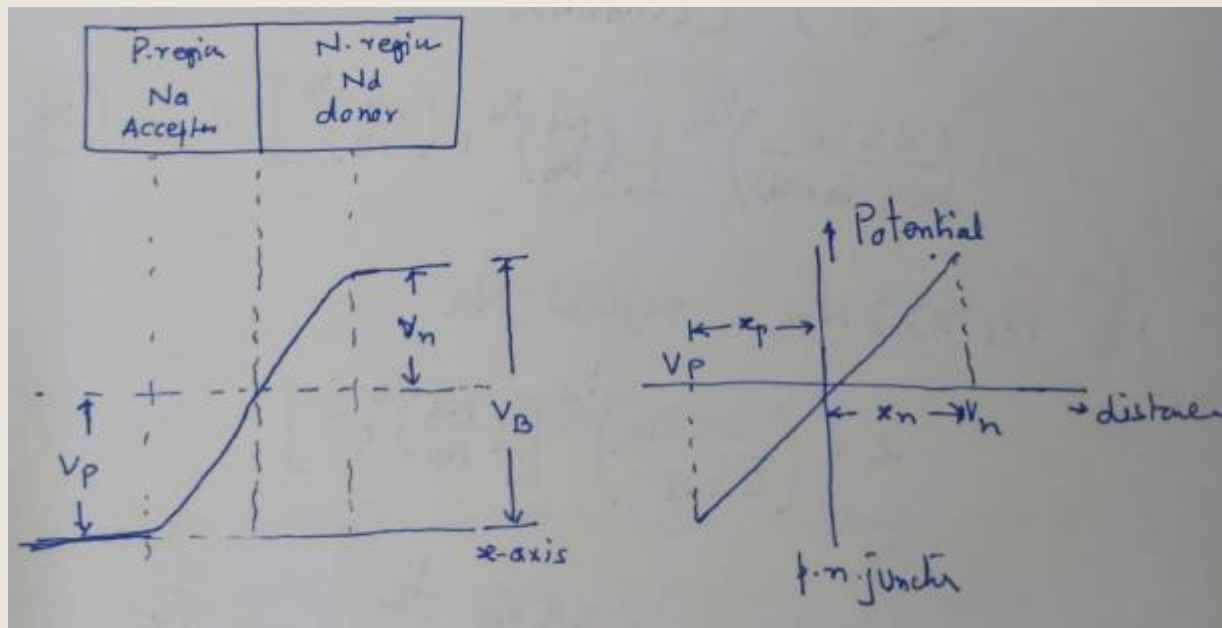 P. region
Na
Acceptor
N. region
Nd
donor
Vn
VB
Vp
x-axis
Potential
xp
Vp
xn
Vn
distance
p.n. junctn